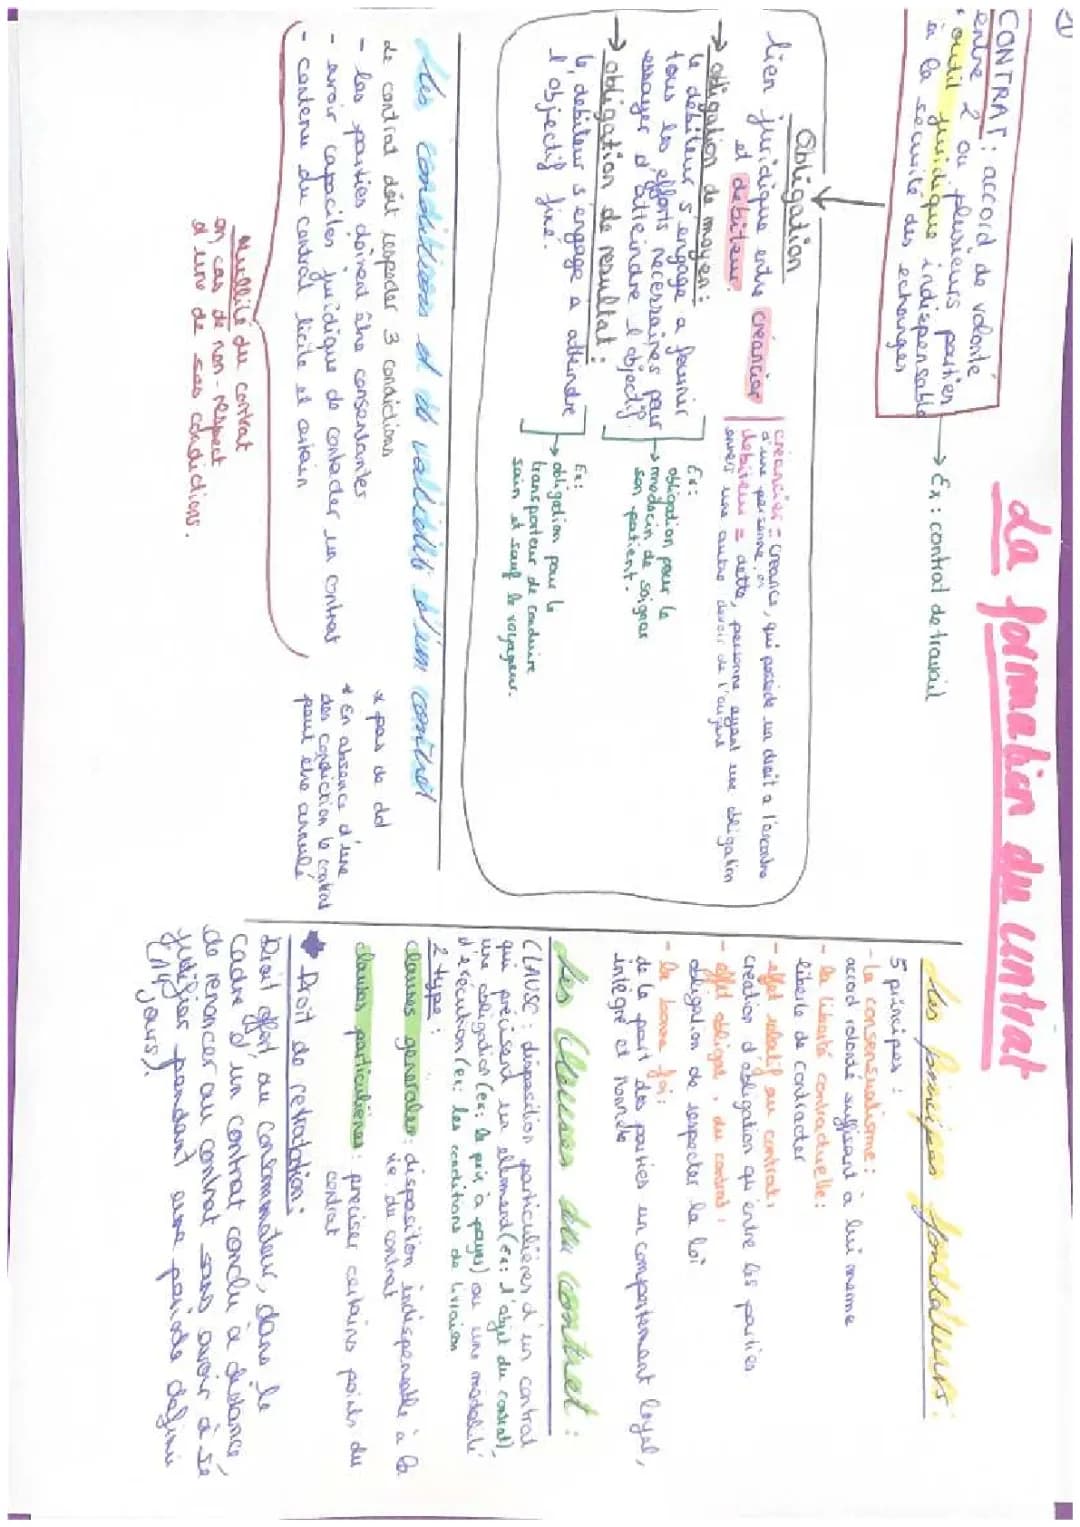 1
La formation du contrat
CONTRAT: accord de volonté
entre 2 ou plusieurs parties
• outil juridique indispensable
à la securité des echanges
→ Ex: contrat de travail
Obligation
lien juridique entre créancier
et débiteur.
créancier = créance, qui possède un droit a l'encontre
d'une personne,
debiteur = dette, personne ayant une obligation
envers une autre devoir de l'argent
→ obligation de moyen:
le débiteur s'engage a fournir
tous les efforts necessaires pour
essayer d'atteindre l'objectif.
Ex:
obligation pour le
→ medecin de soigner
son patient.
→ obligation de resultat:
le débiteur s'engage a atteindre
l'objectif fixé.
Ex:
→ obligation pour le
transporteur de conduire
sain et sauf le voyageur.
Les conditions et de validité d'un contrat
le contrat doit respecter 3 condictions
- les parties doivent être consentantes
- avoir capacites juridique de contracter un contrat
- contenu du contrat licite et certain
* pas de dol
* En absence d'une
des condiction le contrat
peut être annulé
nullité du contrat
en cas de non-respect
d'une de ses condictions.
Les principes fondateurs:
5 principes:
- le consensualisme:
accord volonté suffisant a lui meme
- la liberté contractuelle:
liberte de contracter
- effet relatif au contrat:
création d'obligation qu'entre les parties
- effet obligat. du contrat:
obligation de respecter la loi
- la bonne foi:
de la part des parties un comportement loyal,
intègre et honnête
Les Clauses du contrat:
CLAUSE: disposition particulières d'un contrat
qui précisent un element (ex: l'objet du contrat),
une obligation (ex: le prix à payer) ou une modalité
d'exécution (ex: les conditions de livraison
2 type:
clauses generales: disposition indispensable à la
vie du contrat
clauses particulières: préciser certains points du
contrat
Droit de retratation:
Droit offert au consommateur, dans le
cadre d'un contrat conclu à distance,
de renoncer au contrat sans avoir à se
justifier pendant une periode défini
(14 jours).